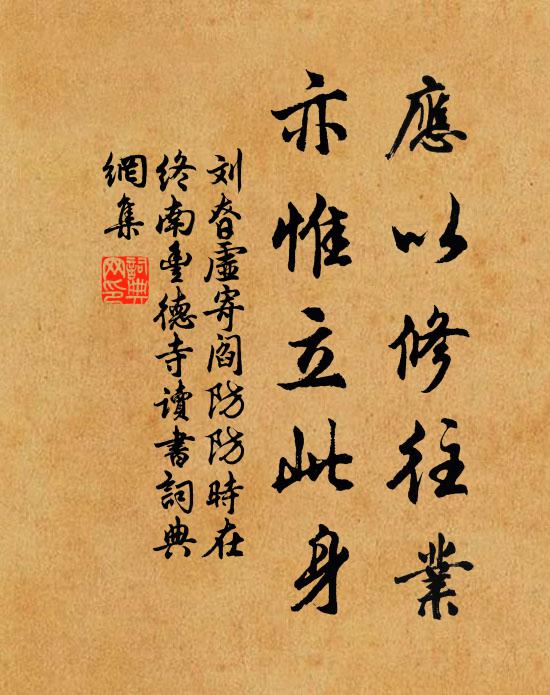 應以修往業
亦惟立此身
刘眘虛寄阎防防時在
終南豊德寺讀書詞典
網集
詞典
网印